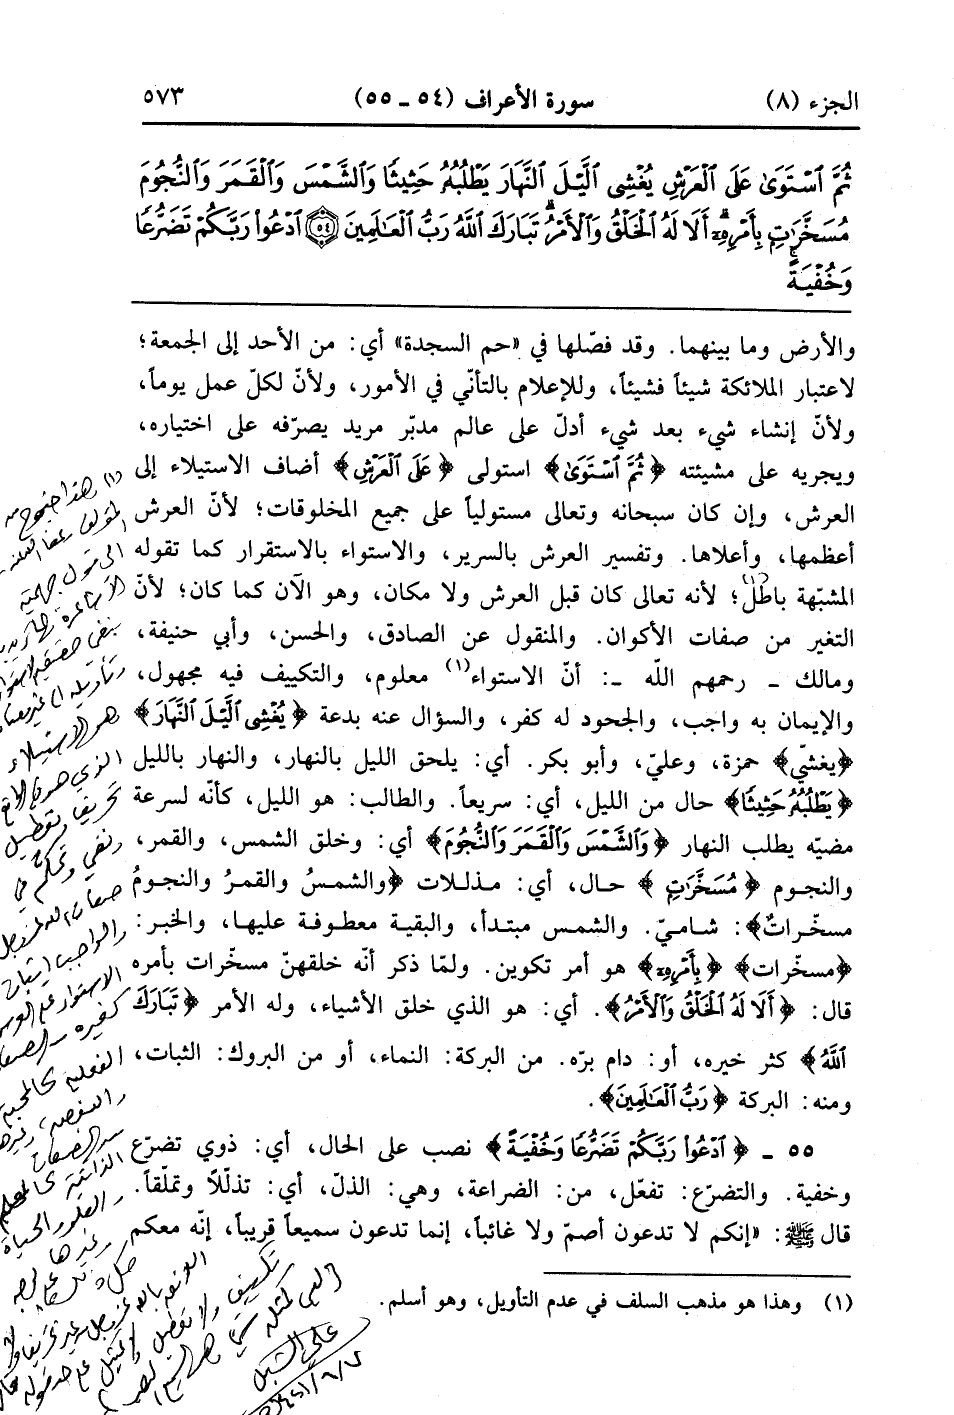 الجزء (٨)
سورة الأعراف (٥٤ ـ ٥٥)
٥٧٣
ثُمَّ ٱسْتَوَىٰ عَلَى ٱلْعَرْشِ يُغْشِى ٱلَّيْلَ ٱلنَّهَارَ يَطْلُبُهُۥ حَثِيثًا وَٱلشَّمْسَ وَٱلْقَمَرَ وَٱلنُّجُومَ
مُسَخَّرَٰتٍۭ بِأَمْرِهِۦٓۗ أَلَا لَهُ ٱلْخَلْقُ وَٱلْأَمْرُۗ تَبَارَكَ ٱللَّهُ رَبُّ ٱلْعَٰلَمِينَ ﴿٥٤﴾ ٱدْعُوا۟ رَبَّكُمْ تَضَرُّعًا
وَخُفْيَةًۚ
والأرض وما بينهما. وقد فصّلها في «حم السجدة» أي: من الأحد إلى الجمعة؛
لاعتبار الملائكة شيئاً فشيئاً، وللإعلام بالتأنّي في الأمور، ولأنّ لكلّ عمل يوماً،
ولأنّ إنشاء شيء بعد شيء أدلّ على عالم مدبّر مريد يصرّفه على اختياره،
ويجريه على مشيئته ﴿ثُمَّ ٱسْتَوَىٰ﴾ استولى ﴿عَلَى ٱلْعَرْشِ﴾ أضاف الاستيلاء إلى
العرش، وإن كان سبحانه وتعالى مستولياً على جميع المخلوقات؛ لأنّ العرش
أعظمها، وأعلاها. وتفسير العرش بالسرير، والاستواء بالاستقرار كما تقوله
المشبّهة باطل(١)؛ لأنه تعالى كان قبل العرش ولا مكان، وهو الآن كما كان؛ لأنّ
التغير من صفات الأكوان. والمنقول عن الصادق، والحسن، وأبي حنيفة،
ومالك ـ رحمهم الله ـ: أنّ الاستواء(١) معلوم، والتكييف فيه مجهول،
والإيمان به واجب، والجحود له كفر، والسؤال عنه بدعة ﴿يُغْشِى ٱلَّيْلَ ٱلنَّهَارَ﴾
﴿يغشّي﴾ حمزة، وعليّ، وأبو بكر. أي: يلحق الليل بالنهار، والنهار بالليل
﴿يَطْلُبُهُۥ حَثِيثًا﴾ حال من الليل، أي: سريعاً. والطالب: هو الليل، كأنّه لسرعة
مضيّه يطلب النهار ﴿وَٱلشَّمْسَ وَٱلْقَمَرَ وَٱلنُّجُومَ﴾ أي: وخلق الشمس، والقمر،
والنجوم ﴿مُسَخَّرَٰتٍ﴾ حال، أي: مذللات ﴿والشمسُ والقمرُ والنجومُ
مسخّراتٌ﴾: شاميّ. والشمس مبتدأ، والبقية معطوفة عليها، والخبر:
﴿مسخّرات﴾ ﴿بِأَمْرِهِۦ﴾ هو أمر تكوين. ولمّا ذكر أنّه خلقهنّ مسخّرات بأمره
قال: ﴿أَلَا لَهُ ٱلْخَلْقُ وَٱلْأَمْرُ﴾. أي: هو الذي خلق الأشياء، وله الأمر ﴿تَبَارَكَ
ٱللَّهُ﴾ كثر خيره، أو: دام برّه. من البركة: النماء، أو من البروك: الثبات،
ومنه: البركة ﴿رَبُّ ٱلْعَٰلَمِينَ﴾.
٥٥ ـ ﴿ٱدْعُوا۟ رَبَّكُمْ تَضَرُّعًا وَخُفْيَةً﴾ نصب على الحال، أي: ذوي تضرّع
وخفية. والتضرّع: تفعّل، من: الضراعة، وهي: الذلّ، أي: تذلّلاً وتملّقاً.
قال ﷺ: «إنكم لا تدعون أصمّ ولا غائباً، إنما تدعون سميعاً قريباً، إنّه معكم
(١) وهذا هو مذهب السلف في عدم التأويل، وهو أسلم.
(١) هذا جنوح من
المؤلف عفا الله عنه
الى قول جهمية
الأشاعرة
بنفي حقيقة الاستواء
وتأويله الى غير معناه
هو الاستيلاء
الذي هو في الواقع
تحريف وتعطيل
ونفي وتحكم في
صفات الله
والواجب إثبات
الاستواء على العرش
كغيره من الصفات
الفعلية كالمحبة
والغضب، وغيرها
من الصفات
الذاتية كالعلم
والعلو والحياة
وغيرها
علي الشبل